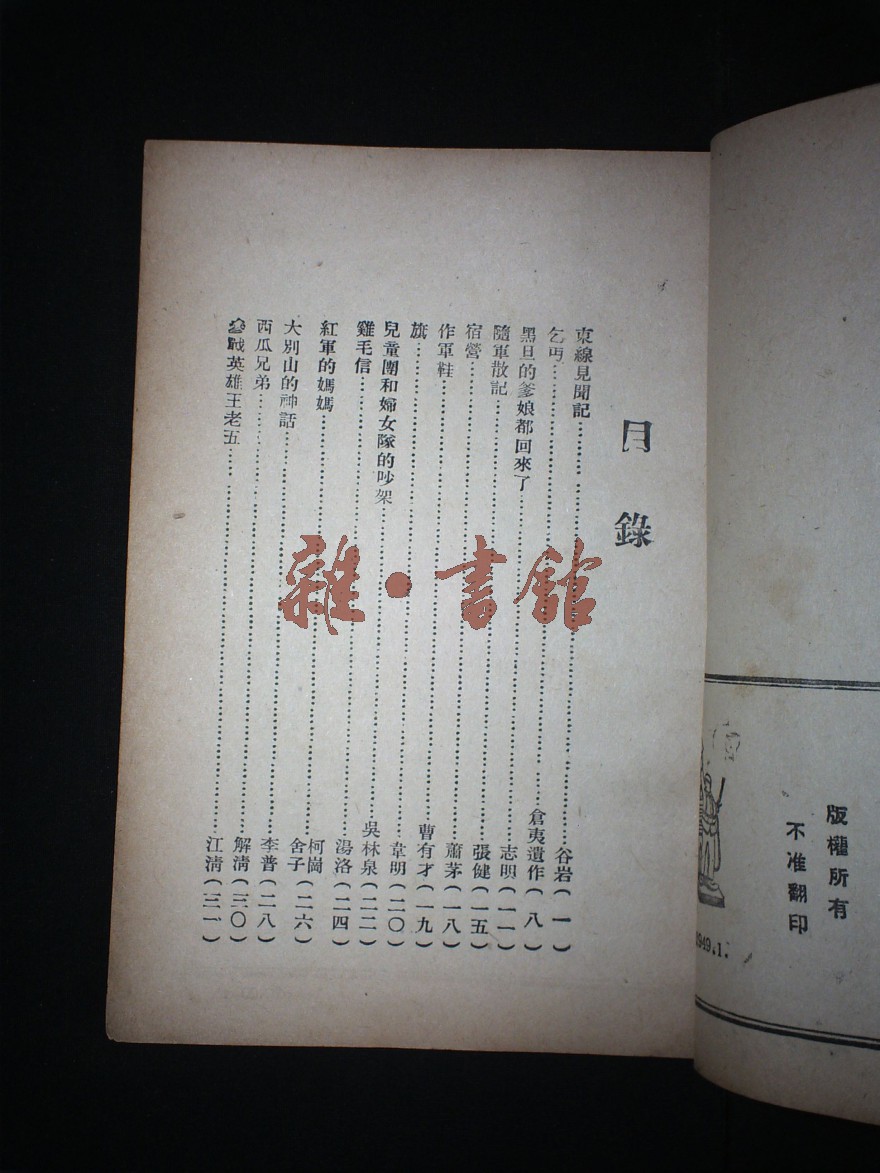 版權所有
不准翻印
1949.1.
目錄
東線見聞記……谷岩(一)
乞丐……倉夷遺作(八)
黑旦的爹娘都回來了……志明(一一)
隨軍散記……張健(一五)
宿營……蕭茅(一八)
作軍鞋……曹有才(一九)
旗……韋明(二〇)
兒童團和婦女隊的吵架……吳林泉(二二)
雞毛信……湯洛(二四)
紅軍的媽媽……柯崗 舍子(二六)
大別山的神話……李普(二八)
西瓜兄弟……解清(三〇)
參戰英雄王老五……江清(三一)
雜·書館